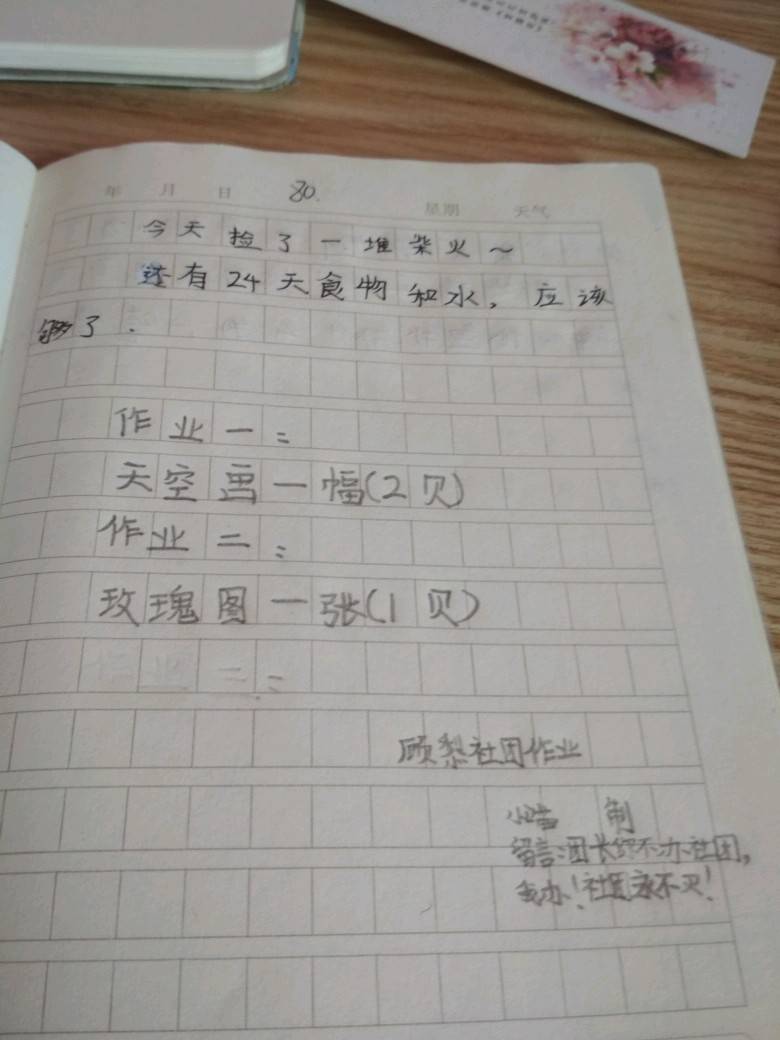 年 月 日 80. 星期 天气
今天捡了一堆柴火~
还有24天食物和水，应该
够了.
作业一：
天空画一幅(2贝)
作业二：
玫瑰图一张(1贝)
作业二：
顾梨社团作业
小喵 制
留言：团长你不办社团，
我办！社团永不灭！